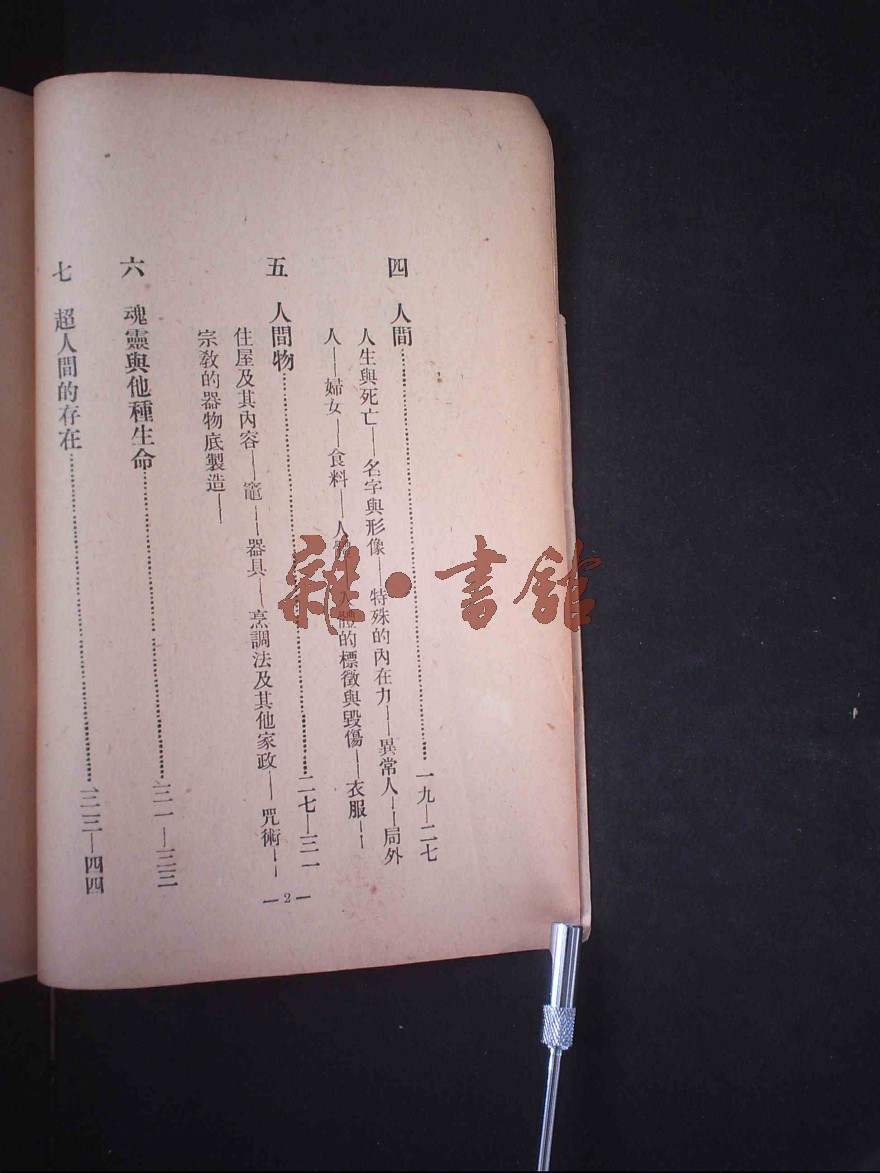 四 人間……一九—二七
人生與死亡—名字與形像—特殊的內在力—異常人—局外
人—婦女—食料—人體—人體的標徵與毀傷—衣服—
五 人間物……二七—三一
住屋及其內容—竈—器具—烹調法及其他家政—咒術—
宗敎的器物底製造—
六 魂靈與他種生命……三一—三三
七 超人間的存在……三三—四四
—2—
雜·書館